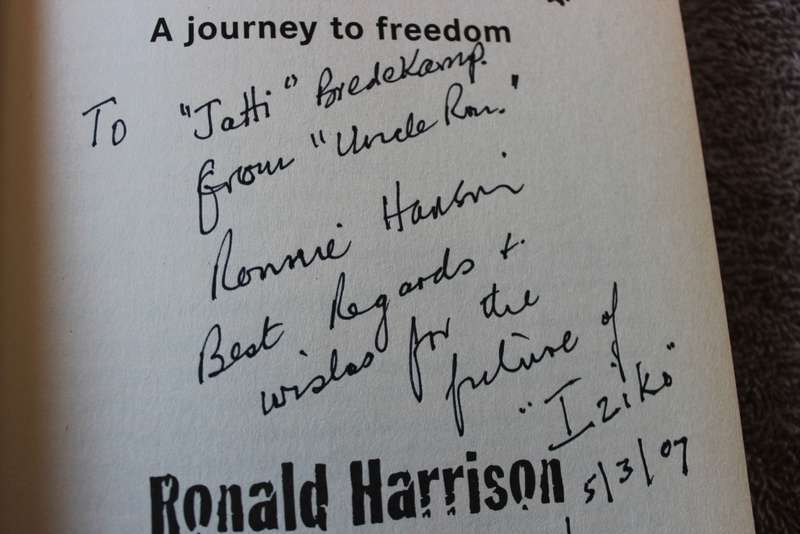 A journey to freedom
To "Jatti" Bredekamp.
from "Uncle Ron."
Ronnie Harrison
Best Regards +
wishes for the
future of
"Iziko"
Ronald Harrison
5/3/07